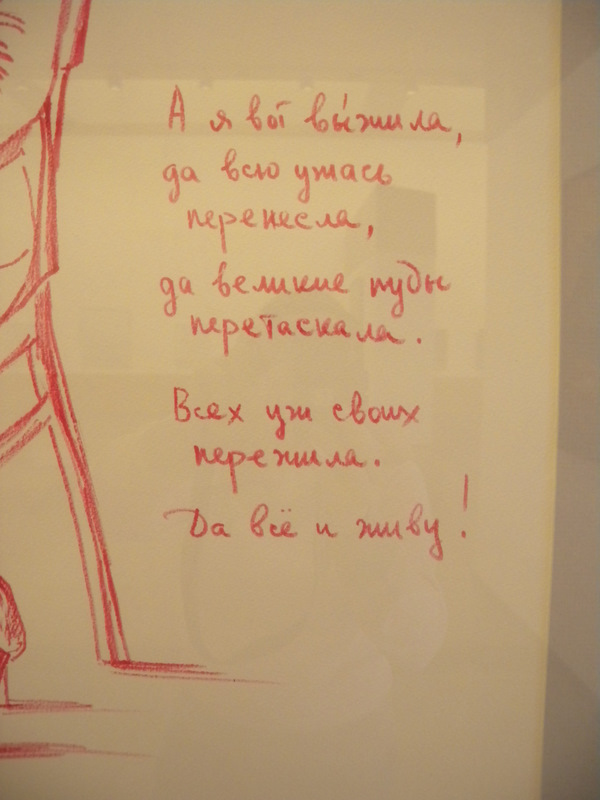 А я вот вы́жила,
да всю ужась
перенесла,
да великие пуды
перетаскала.
Всех уж своих
пережила.
Да всё и живу!